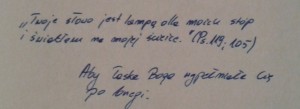 „Twoje słowo jest lampą dla moich stóp
i światłem na mojej ścieżce." (Ps. 119, 105)
Aby łaska Boga wypełniała Cię
po brzegi.